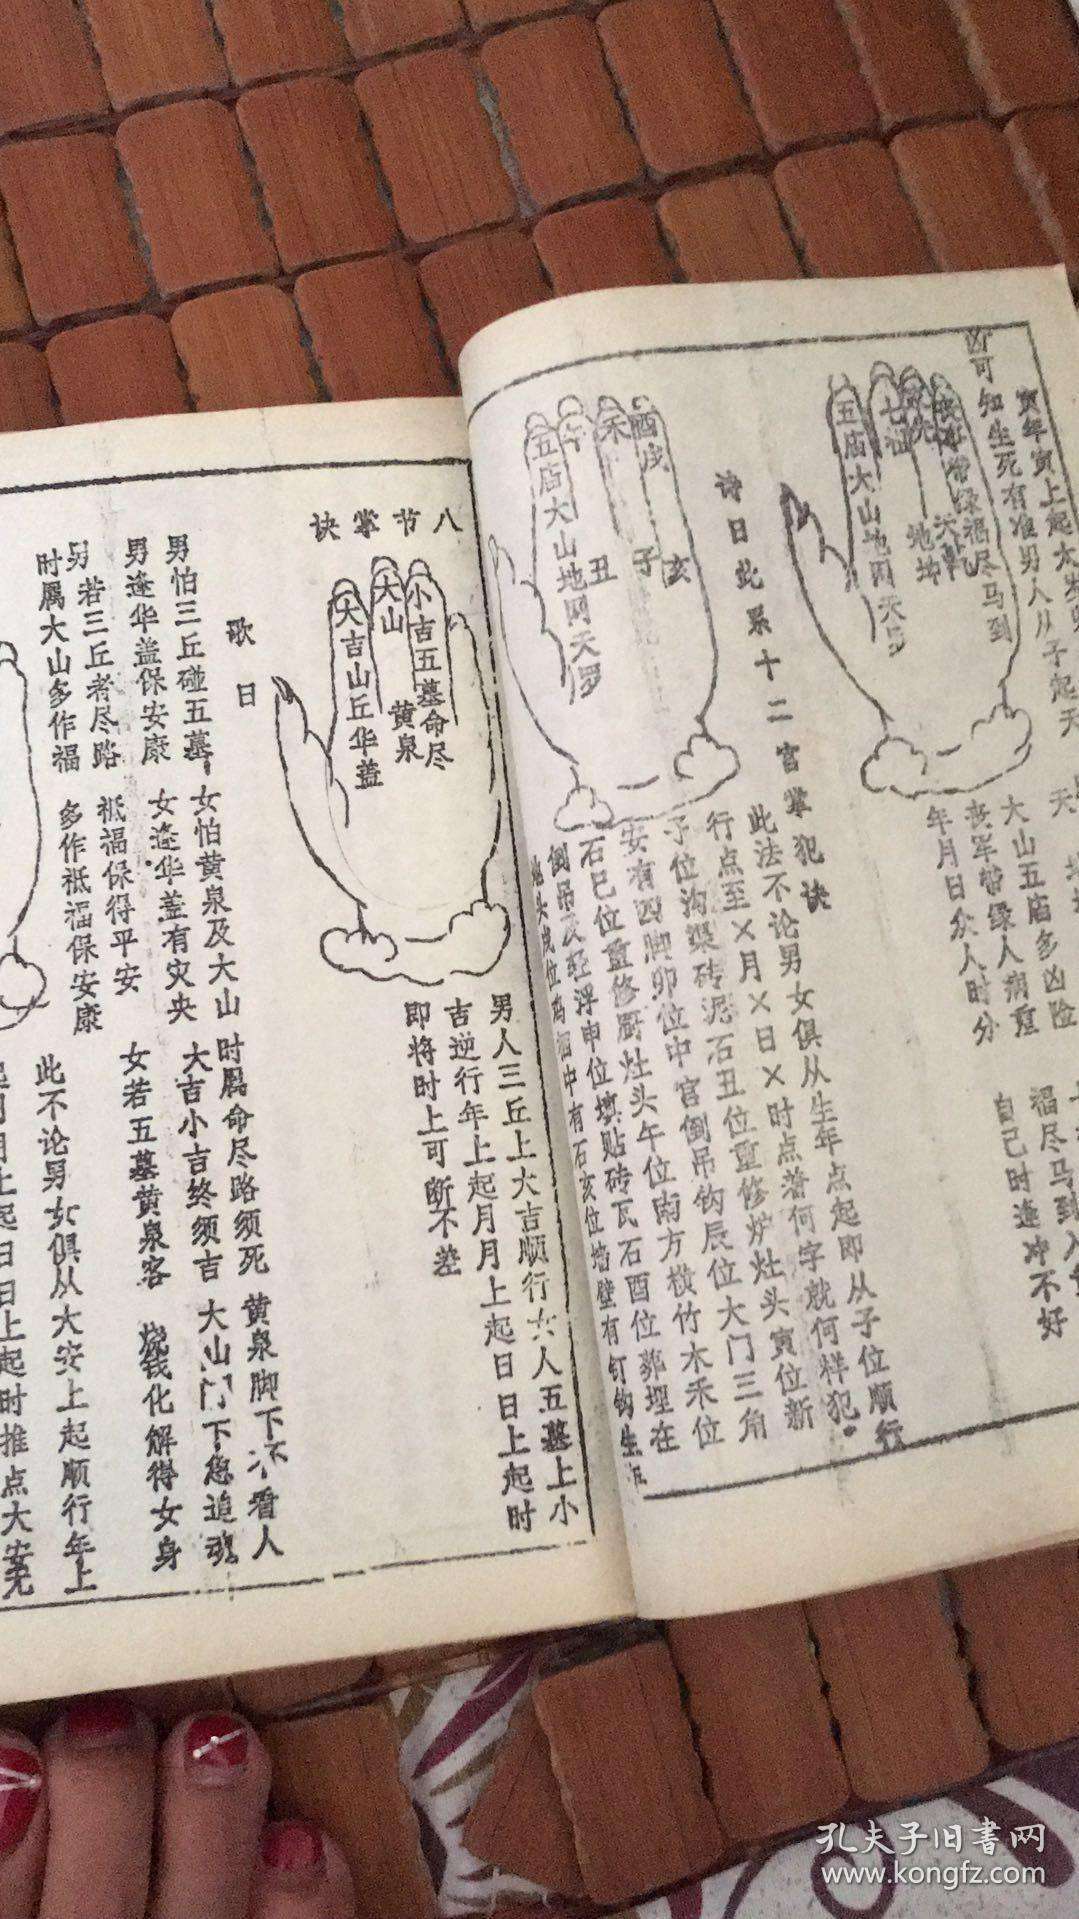 寅年寅上起太岁
凶可知生死有准男人从子起天
五庙大山地网天罗
大山五庙多凶险
丧军带绿人病重
年月日众人时分
福尽马到入
自己时逢冲不好
诗曰此系十二宫掌犯诀
酉戌
亥
禾
子
午
丑
五庙大山地网天罗
此法不论男女俱从生年点起即从子位顺行
行点至×月×日×时点着何字就何样犯。
子位沟渠砖泥石丑位重修炉灶头寅位新
安有四脚卯位中宫倒吊钩辰位大门三角
石巳位重修厨灶头午位南方横竹木禾位
倒吊及轻浮申位填贴砖瓦石酉位葬埋在
中有石亥位墙壁有钉钩生
八节掌诀
小吉五墓命尽
黄泉
大山
大吉山丘华盖
男人三丘上大吉顺行女人五墓上小
吉逆行年上起月月上起日日上起时
即将时上可断不差
歌曰
男怕三丘碰五墓 女怕黄泉及大山 时属命尽路须死 黄泉脚下不看人
男逢华盖保安康 女逢华盖有灾央 大吉小吉终须吉 大山门下急追魂
另若三丘者尽路 祗福保得平安 女若五墓黄泉客 烧钱化解得女身
时属大山多作福 多作祗福保安康
此不论男女俱从大安上起顺行年上
起日日上起时推点大安无
孔夫子旧书网
www.kongfz.com